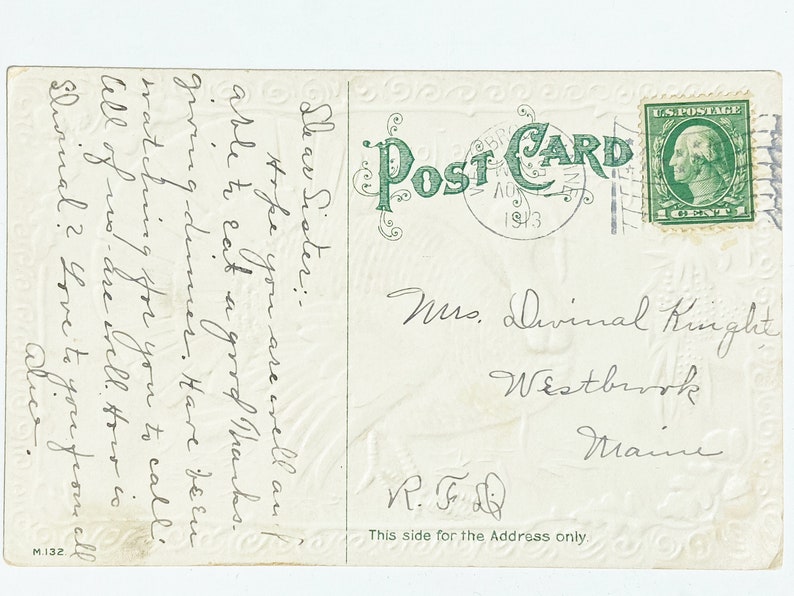 Dear Sister:-
Hope you are well and
able to eat a good Thanks-
giving dinner. Have been
watching for you to call.
All of us are well. How is
Divinal? Love to you from all
Alice.
POST CARD
WESTBROOK
MAINE
1913
U.S. POSTAGE
1 CENT 1
Mrs. Divinal Knight,
Westbrook
Maine
R.F.D.
This side for the Address only.
M.132.